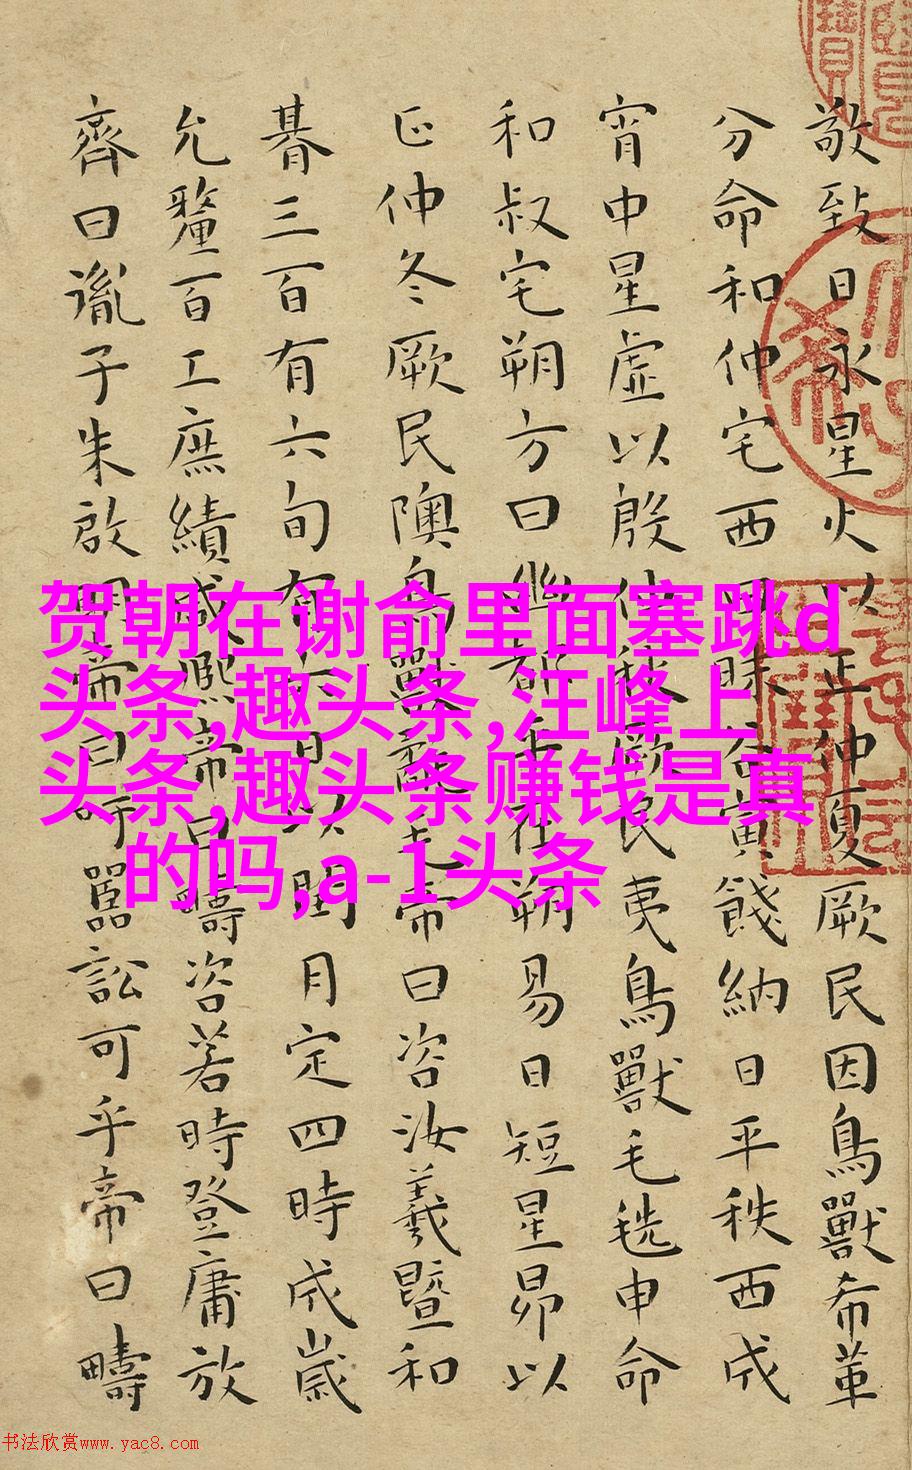 敬致日永星火以正仲夏厥民因鳥獸希革
分命和仲宅西曰昧谷寅餞納日平秩西成
宵中星虛以殷仲秋厥民夷鳥獸毛毨申命
和叔宅朔方曰幽都平在朔易日短星昴以
正仲冬厥民隩鳥獸氄毛帝曰咨汝羲暨和
朞三百有六旬有六日以閏月定四時成歲
允釐百工庶績咸熙帝曰疇咨若時登庸放
齊曰胤子朱啟明帝曰吁嚚訟可乎帝曰疇
贺朝在谢俞里面塞跳d
头条,趣头条,汪峰上
头条,趣头条赚钱是真
的吗,a-1头条
书法欣赏www.yac8.com